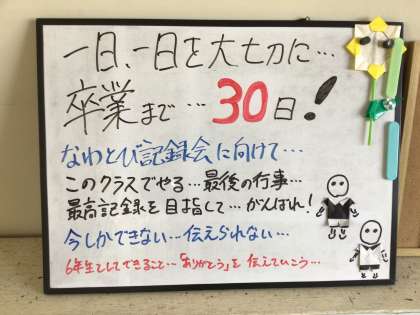 一日、一日を大切に…
卒業まで…30日!
なわとび記録会に向けて…
このクラスでやる…最後の行事…
最高記録を目指して…がんばれ!
今しかできない…伝えられない…
6年生としてできること…「ありがとう」を伝えていこう…